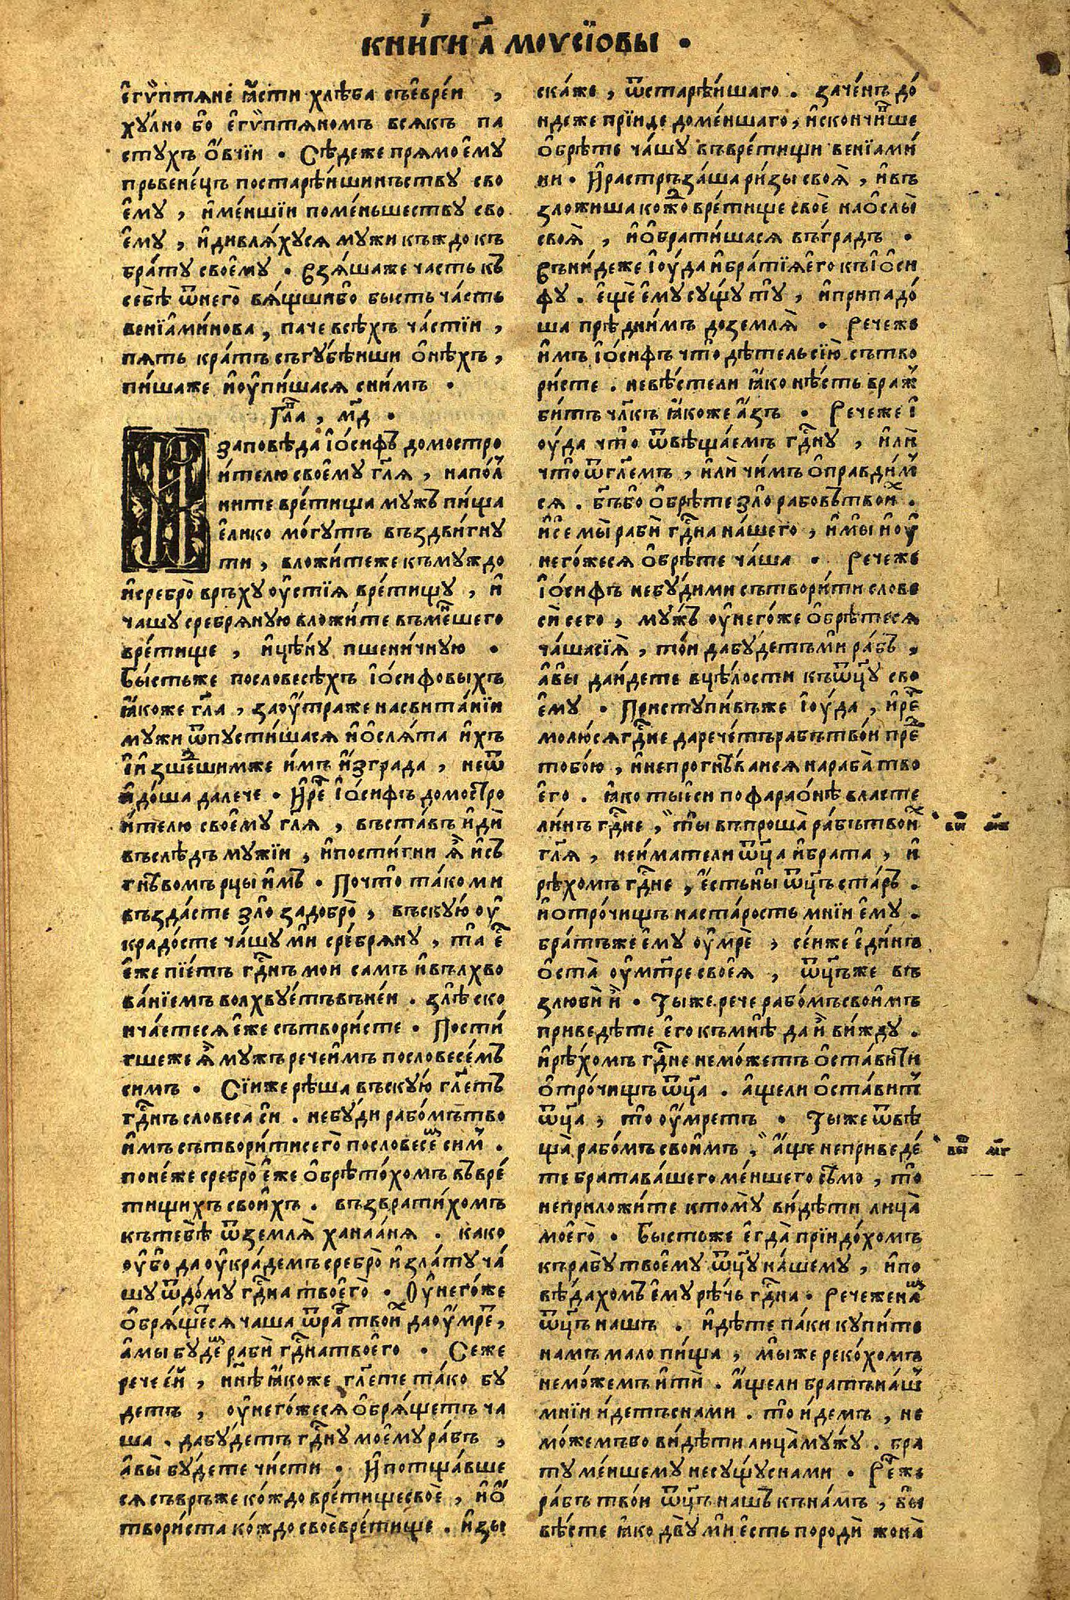 кни́ги а҃ моѵсїовы •
є҆гѵ́птяне ꙗ҆́сти хлѣ́ба съе҆вре́и ,
ху́лно бо є҆гѵ́птяномъ всякъ па
сту́хъ ѻ҆́вчїи • Сѣ́деже прямо є҆му
пръвене́цъ постарѣ́ишинъству сво
є҆му , и҆ме́ншїи поме́ньшеству сво
є҆му , и҆дивля́хуся мужи къждо къ
бра́ту своє҆му • Взя́шаже часть къ
себѣ̀ ѿнего̀ вя́щшибо бысть ча́сть
венїа҆ми́нова , паче всѣ́хъ ча́стїи ,
пять кра́тъ съгубѣ́иши ѻ҆нѣ́хъ ,
пи́шаже и҆ѹ҆пи́шася сни́мъ •
Гла҃ , мд҃ •
заповѣ́да і҆ѻ́сифъ домостро
и́телю своє҆му гл҃я , напо́л
ните вре́тища му́жъ пи́ща
є҆́лико мо́гутъ въздви́гну
ти , вложи́теже къму́ждо
и҆сребро̀ връ́ху ѹ҆стїя вре́тищу , и҆
ча́шу сребря́ную вложи́те въме́ншего
вре́тище , и҆цѣ́ну пшени́чную •
Бы́стьже пословесѣ́хъ і҆ѻ́сифовыхъ
ꙗ҆́коже гл҃а , заѹ҆́траже насвита́нїи
му́жи ѿпусти́шася и҆ѻ҆сля́та и҆́хъ
І҆и҆зше́дшимже и҆́мъ и҆́зграда , неѿ
и҆до́ша дале́че • И҆ре҃ і҆ѻ́сифъ домостро
и́телю своє҆му гл҃я , въста́въ и҆дѝ
въслѣ́дъ мужїи , и҆пости́гни ꙗ҆̀ и҆съ
гнѣ́вомъ рцы и҆́мъ • Почто̀ та́ко ми
възда́сте зло̀ задобро̀ , въску́ю ѹ҆
кра́досте ча́шу мѝ сре́бряну , та̀ є҆́
є҆́же пїе́тъ гдн҃ъ мои са́мъ и҆вълхво
ва́нїемъ волхву́етъвъне́и . злѣ̀ ско
нча́етеся є҆́же сътвори́сте • Пости́
гшеже ꙗ҆̀ мужъ рече и҆́мъ пословесе́мъ
симъ • Сїи́же рѣ́ша въску́ю гл҃етъ
гдн҃ъ словеса̀ сѝ . небу́ди рабо́мътво
и҆́мъ сътвори́тисего̀ пословесе́ сим .
поне́же сребро̀ є҆́же ѻ҆брѣто́хомъ въвре́
тищихъ свои́хъ . възврати́хомъ
къте́бѣ ѿземля̀ ханаа́ня . ка́ко
ѹ҆́бо да ѹ҆кра́демъ сребро̀ и҆зла́ту ча́
шу ѿдо́му гдн҃а твоего̀ • Ѹ҆него́же
ѻ҆бря́щеся чаша ѿра̀ твои́х да ѹ҆́мре ,
а҆мы бу́дем рабѝ гдн҃атвоего • Сеже
рече є҆и́ , и҆нн҃ѣ ꙗ҆́коже гл҃ете та́ко бу
детъ , ѹ҆него́жеся ѻ҆бря́щетъ ча
ша . дабу́детъ гдн҃у моє҆му ра́бъ ,
а҆вы̀ бу́дете чи́сти • И҆потща́вше
ся съвръже ко́ждо вре́тищесвое , и҆ѻ҆
твори́ста ко́ждо своѐвре́тище . и҆зы
ска́же , ѿстарѣ́ишаго . заче́нъ до́
ндеже прїи́де доме́ншаго , и҆сконча́вше
ѻ҆брѣ́те ча́шу въвре́тищи венїами́
ни • И҆растръза́ша ри́зы своя̀ , и҆въ
зложиша ко́ждо вре́тище своѐ наѻ҆слы̀
своя̀ , и҆ѻ҆брати́шася въгра́дъ •
Въни́деже і҆у́да и҆бра́тїяє҆го къі҆ѻ́си
фу . є҆ще́ є҆му су́щу ту̀ , и҆припадо́
ша прѣдни́мъ доземля̀ • Рече́же
и҆́мъ і҆ѻ́сифъ что̀ дѣ́тельсїю̀ сътво
ри́сте . невѣ́стели ꙗ҆́ко нѣ́сть враж
би́тъ чл҃къ ꙗ҆коже а҆́зъ • Рече́же і҆
ѹда что̀ ѿвѣща́емъ гдн҃у , и҆лѝ
что̀ ѿгл҃емъ , и҆лѝ чимъ ѻ҆правди́м
ся . бг҃ъбо ѻ҆брѣ́те зло̀ рабо́вътвои́х .
и҆се мы̀ рабѝ гдн҃а на́шего , и҆мы и҆ѹ҆
него́жеся ѻ҆брѣ́те ча́ша • Рече́же
і҆ѻ́сифъ небу́дими сътвори́ти слове
сѝ сего̀ , му́жъ ѹ҆него́же ѻ҆брѣ́теся
ча́шасїя̀ , то́и дабу́детъми ра́бъ ,
а҆вы да́идете вцѣ́лости къѿц҃у сво
є҆му • Приступи́въже і҆у́да , и҆ре҃
молю́сягдн҃е дарече́тъ рабъ твои прѣд
тобо́ю , и҆непрогнѣ́ваися нараба̀ тво
є҆го . ꙗ҆́ко тыѐси пофарао́нѣ власте
ли́нъ гдн҃е , ты въпроша̀ рабы̀твоя̀
гл҃я , неи́матели ѿц҃а и҆бра́та , и҆
рѣхо́мъ гдн҃е , є҆́стьны̀ ѿц҃ъ ста́ръ .
и҆ѻтро́чищъ наста́рость мнїи є҆му .
бра́тъже є҆му ѹ҆мрѐ , се́иже є҆ди́нъ
ѻ҆ста̀ ѹ҆мт҃ре своея̀ , ѿц҃ъже въ
злюбѝ и҆̀ • Ты́же рече рабо́мъсвои́мъ
приведѣ́те є҆го̀ къмнѣ̀ да и҆̀ ви́жду .
и҆рѣ́хомъ гдн҃е немо́жетъ ѻ҆ста́вити
ѻ҆тро́чищъ ѿц҃а . а҆́щели ѻ҆ста́вит
ѿц҃а , то̀ ѹ҆́мретъ • Ты́же ѿвѣ
ща̀ рабо́мъ свои́мъ , а҆́ще неприведе́
те братава́шего ме́ншего сѣ́мо , то̀
неприложи́те ктому̀ ви́дѣти лица̀
моєго̀ • Бы́стьже є҆гда̀ прїидо́хомъ
къра́бу твоє́му ѿц҃у на́шему , и҆по
вѣ́дахомъ є҆му рѣ́чь гдн҃а • Рече́жена́м
ѿц҃ъ нашъ . и҆дѣ́те па́ки купи́те
на́мъ ма́ло пи́ща , мы́же реко́хомъ
немо́жемъ и҆тѝ . а҆́щели бра́тъна́ш
мнїи и҆́детъсна́ми . то̀ и҆́демъ , не
мо́жемъбо ви́дѣти лица̀му́жу . бра
ту ме́ншему несу́щуснами • Ре҃же
ра́бъ тво́и ѿц҃ъ нашъ къна́мъ , вы
вѣ́сте ꙗ҆ко дву̀ мѝ єсть породѝ жена̀